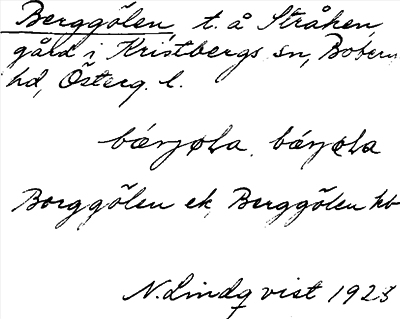 Berggölen, t. å Stråken,
gård i Kristbergs sn, Bobers
hd, Österg. l.
bærjøla, bærjøla
Borggölen ek, Berggölen kb
N. Lindqvist 1923